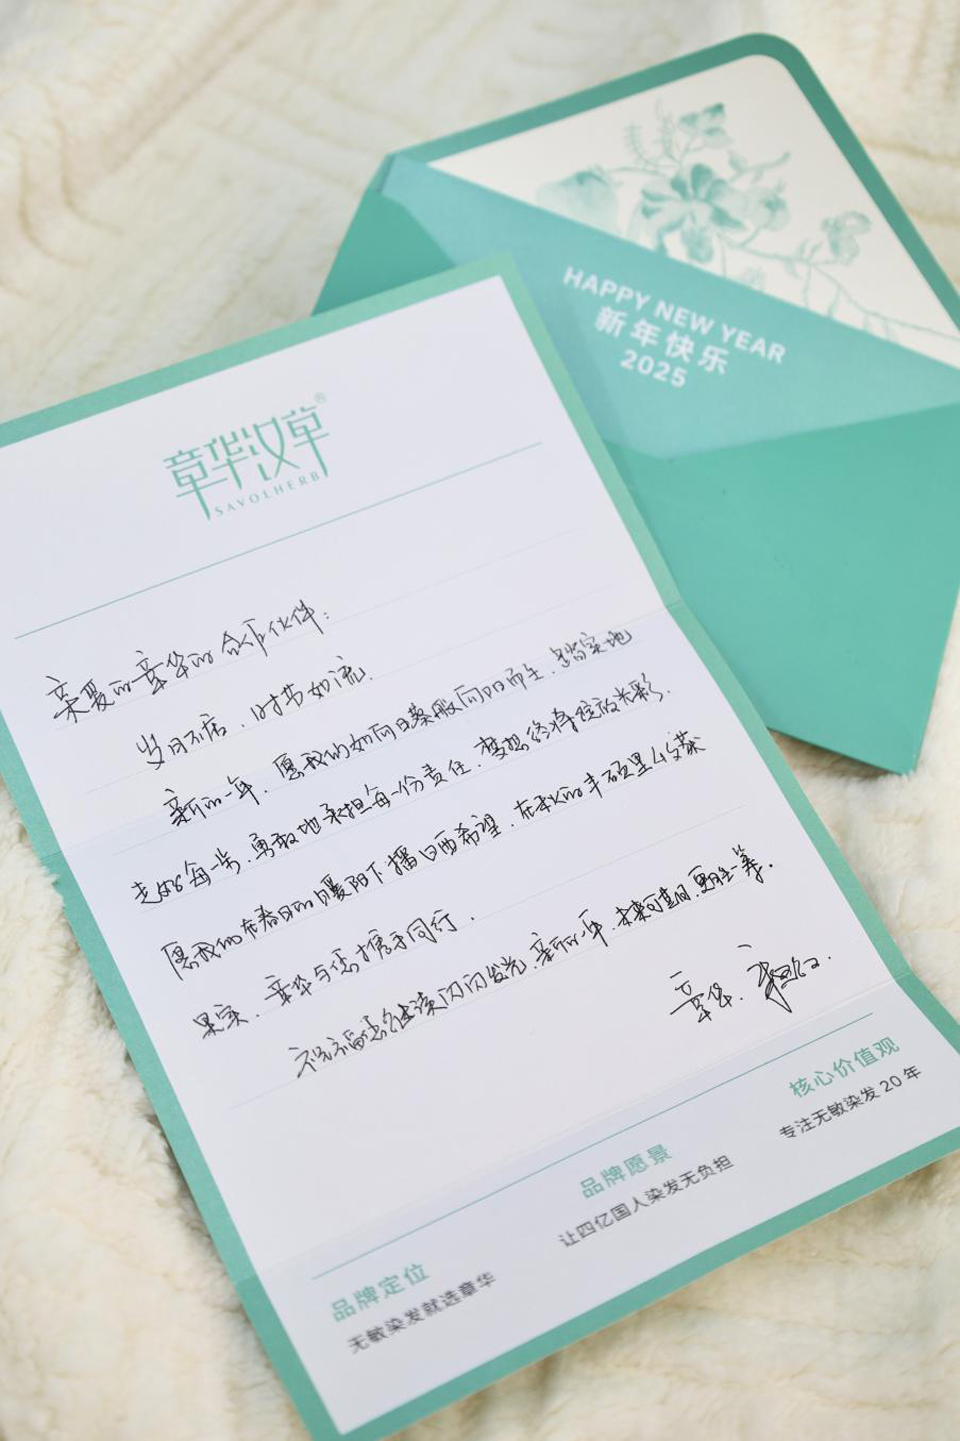 HAPPY NEW YEAR
新年快乐
2025
章华汉草®
SAVOLHERB
亲爱的章华的合作伙伴：
岁月不居、时节如流.
新的一年，愿我们如向日葵般向阳而生，踏实地
走好每一步，勇敢地承担每一份责任，梦想终将绽放光彩.
愿我们在春日的暖阳下播种希望，在秋天的丰硕里收获
果实，章华与您携手同行.
祝福您继续闪闪发光，新的一年，未来可期，更胜一筹.
章华.
核心价值观
专注无敏染发20年
品牌愿景
让四亿国人染发无负担
品牌定位
无敏染发就选章华